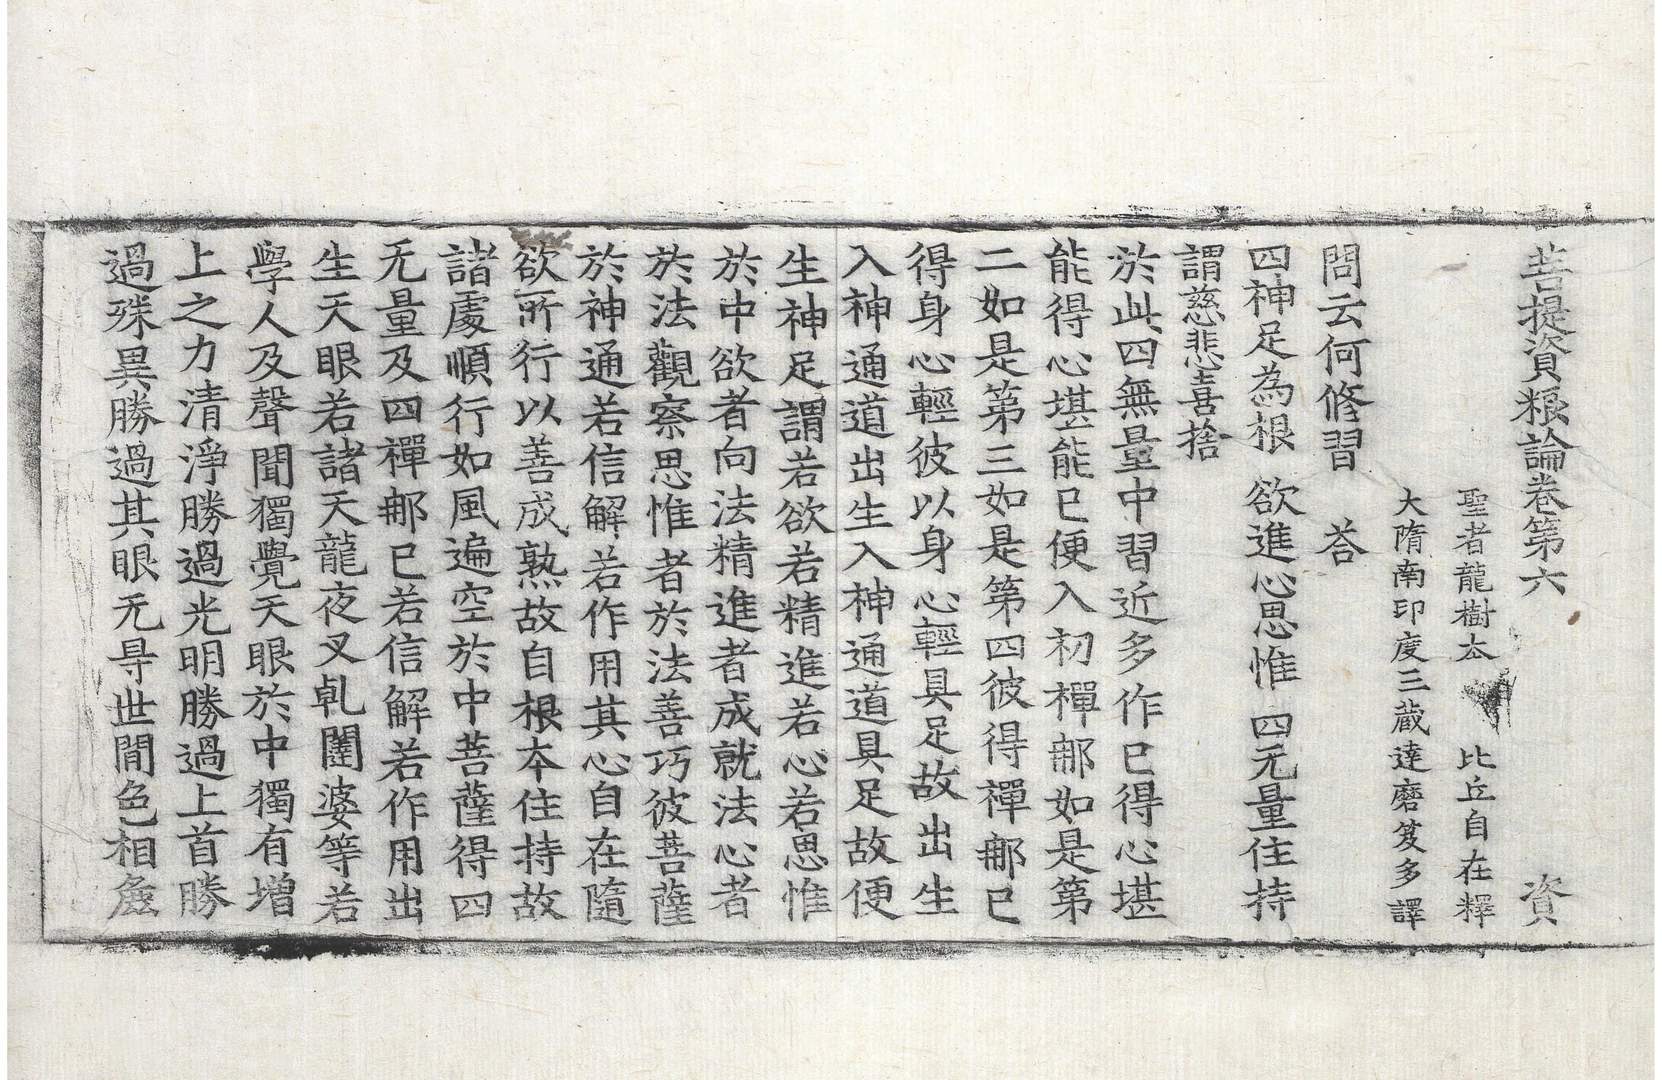 菩提資粮論卷第六　資
聖者龍樹夲　比丘自在釋
大隋南印度三藏達磨笈多譯
問云何修習　荅
四神足為根　欲進心思惟　四无量住持
謂慈悲喜捨
於此四無量中習近多作已得心堪
能得心堪能已便入初禪郍如是第
二如是第三如是第四彼得禪郍已
得身心輕彼以身心輕具足故出生
入神通道出生入神通道具足故便
生神足謂若欲若精進若心若思惟
於中欲者向法精進者成就法心者
於法觀察思惟者於法善巧彼菩薩
於神通若信解若作用其心自在隨
欲所行以善成熟故自根夲住持故
諸處順行如風遍空於中菩薩得四
无量及四禪郍已若信解若作用出
生天眼若諸天龍夜叉乹闥婆等若
學人及聲聞獨覺天眼於中獨有增
上之力清淨勝過光明勝過上首勝
過殊異勝過其眼无㝵世間色相麁